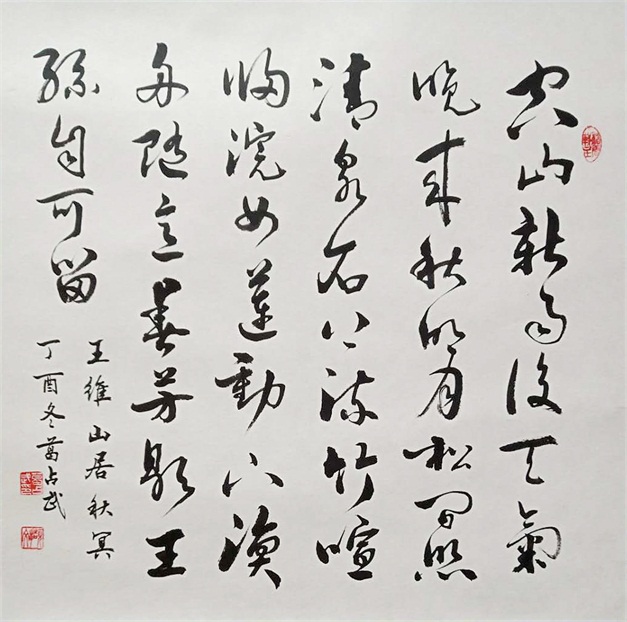 空山新雨後天氣
晚来秋明月松間照
清泉石上流竹喧
歸浣女蓮動下漁
舟随意春芳歇王
孫自可留
王維山居秋冥
丁酉冬葛占武